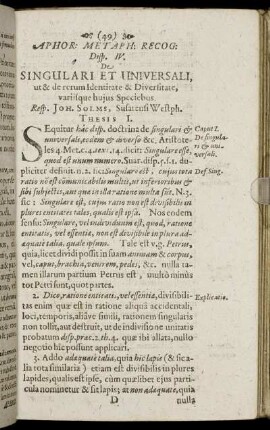 (49)
APHOR: METAPH: RECOG:
Disp. IV.
De
SINGULARI ET UNIVERSALI,
ut & de rerum Identitate & Diversitate,
variisque hujus Speciebus.
Resp. JOH. SOLMS, Susatensi Westph.
THESIS I.
SEquitur hâc disp. doctrina de singulari &
universali, eodem & diverso &c. Aristote-
les 4. Met. c. 4. dicit: Singulare esse,
quod est unum numero. Suar. disp. 5. s. 1. du-
pliciter definit. n. 2. sic: Singulare est, cujus tota
ratio nõ est communicabilis multis, ut inferioribus &
sibi subjectis, aut quæ in illa ratione multa sīt. N. 3.
sic: Singulare est, cujus ratio non est divisibilis in
plures entitates tales, qualis est ipsa. Nos eodem
sensu: Singulare, vel individuū est, quod, ratione
entitatis, vel essentiæ, non est divisibile in plura ad-
æquatè talia, quale ipsum. Tale est v. g. Petrus,
quia, licet dividi possit in suam animam & corpus,
vel caput, brachia, ventrem, pedes, &c. nulla ta-
men illarum partium Petrus est, multò minùs
tot Petri sunt, quot partes.
2. Dico, ratione entitatis, vel essentiæ, divisibili-
tas enim quæ est in ratione aliquâ accidentali,
loci, temporis, aliâve simili, rationem singularis
non tollit, aut destruit, ut de indivisione unitatis
probatum disp. præc. 2. th. 4. quæ ibi allata, nullo
negotio hîc possunt applicari.
3. Addo adæquatè talia, quia hic lapis (& sic a-
lia tota similaria) etiam est divisibilis in plures
lapides, qualis est ipse, cùm quælibet ejus parti-
cula nominetur & sit lapis; at non adæquatè, quia
D nulla
Caput I.
De singula-
ri & uni-
versali.
Def Sing.
Explicatio.